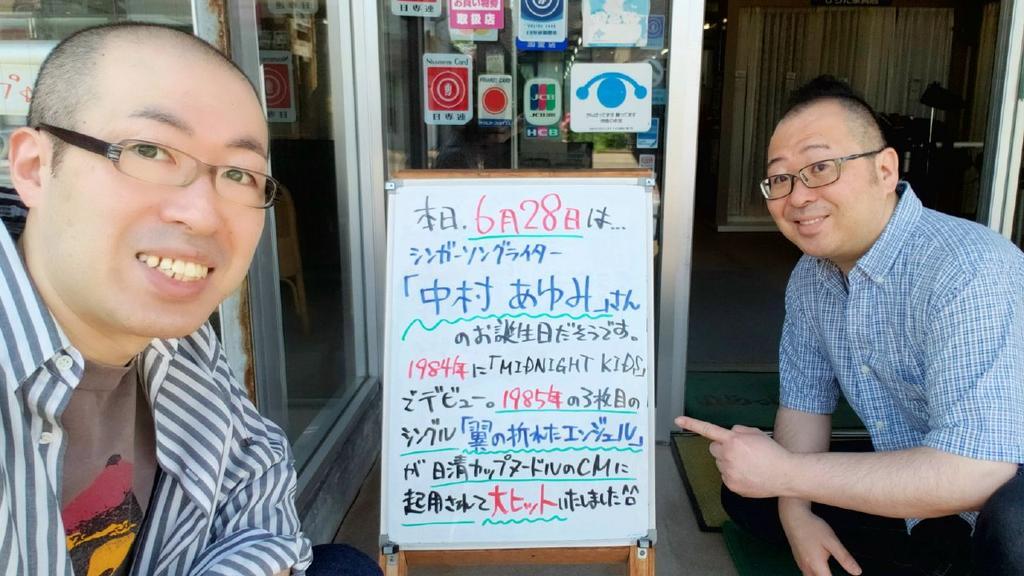 お買い物券
取扱店
日専連
Nissenren Card
日専連
JCB
HCB
本日、6月28日は...
シンガーソングライター
「中村 あゆみ」さん
のお誕生日だそうです。
1984年に「MIDNIGHT KIDS」
でデビュー。1985年の3枚目の
シングル「翼の折れたエンジェル」
が日清カップヌードルのCMに
起用されて大ヒットいたしました^^